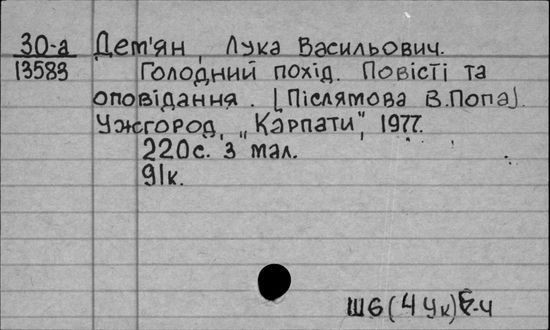 30-а Дем'ян, Лука Васильович.
13583 Голодний похід. Повісті та
оповідання. [Післямова В.Попа].
Ужгород, „Карпати", 1977.
220с. з мал.
91к.
Ш6(4Ук)